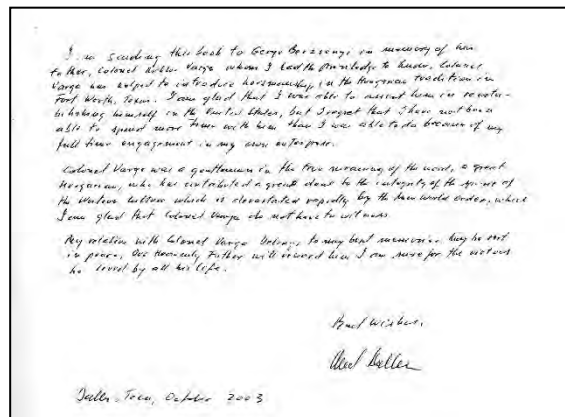 I am sending this book to George Berzsenyi in memory of his
father, Colonel Varga whom I had the privilege to know. Colonel
Varga has helped to introduce horsemanship in the Hungarian tradition in
Fort Worth, Texas. I am glad that I was able to assist him in
himself in the United States, but I regret that I have not been
able to spend more time with him than I was able to do because of my
full time engagement in my own enterprise.
Colonel Varga was a gentleman in the true meaning of the word, a great
Hungarian, who has contributed a great deal to the integrity of the
of the Western culture which is devastated rapidly by the new world order, which
I am glad that Colonel Varga do not have to witness.
My relation with Colonel Varga belongs to my best memories may he rest
in peace. Our Heavenly Father will reward him I am sure for the
he lived by all his life.
Best Wishes,
Dallas, Texas, October 2003